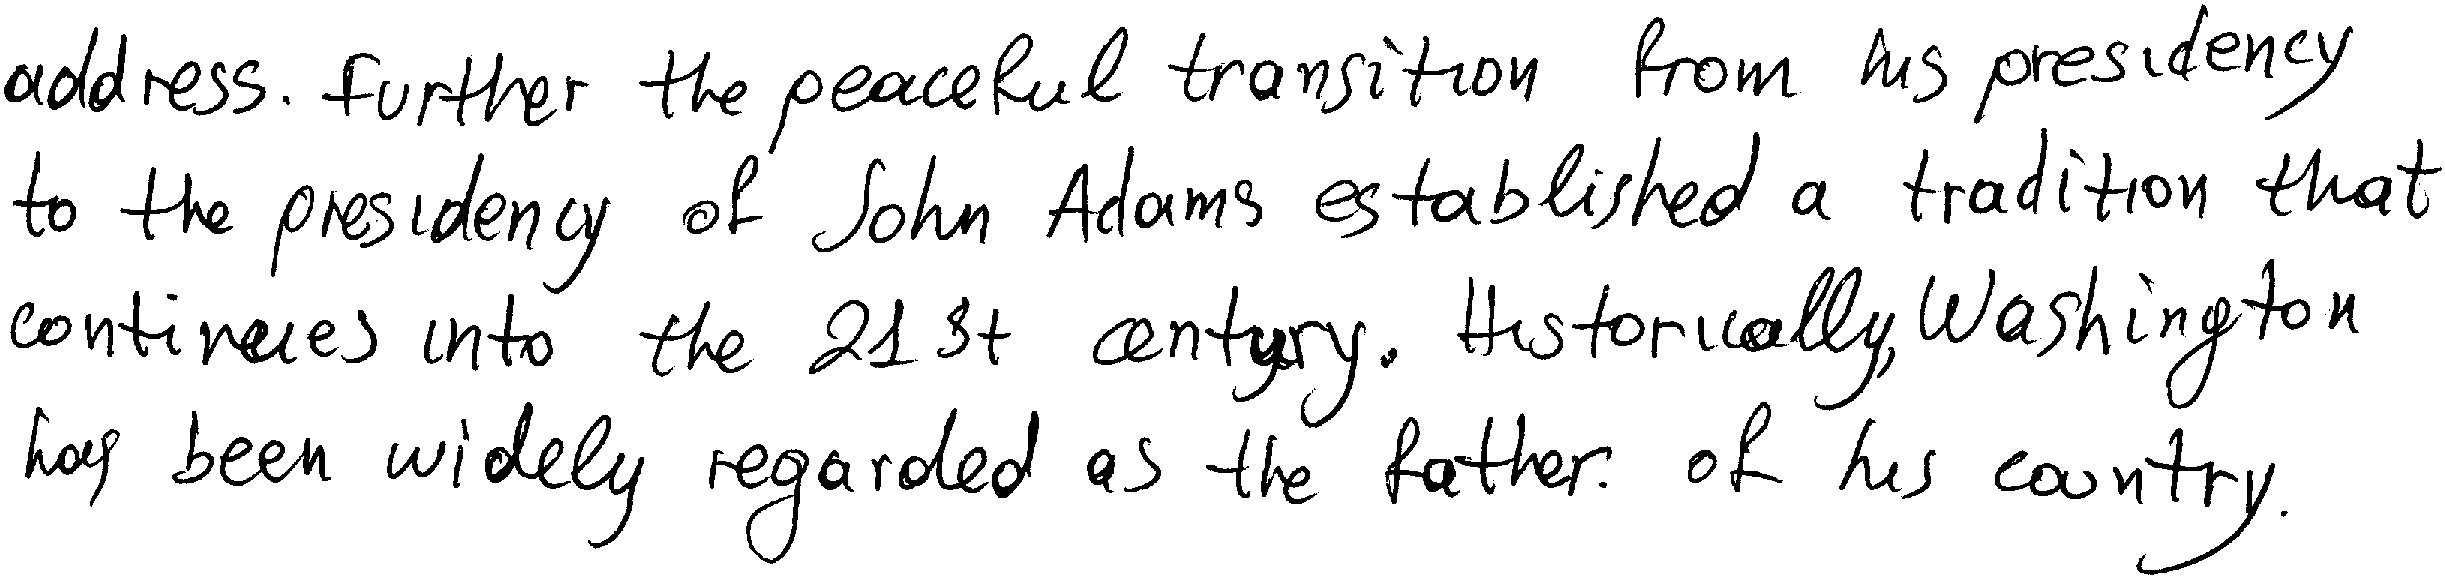 address. Further the peaceful transition from his presidency
to the presidency of John Adams established a tradition that
continues into the 21st century. Historically, Washington
has been widely regarded as the father. of his country.